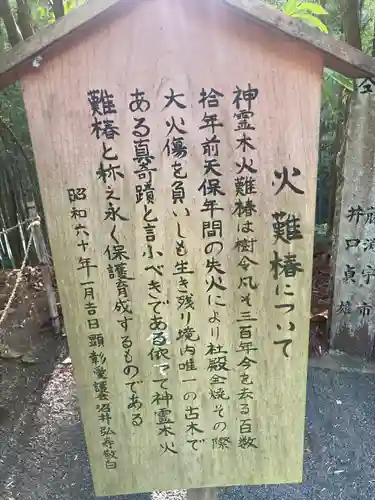 火難椿について
神霊木火難椿は樹令凡そ三百年今を去る百数
拾年前天保年間の失火により社殿全焼その際
大火傷を負いしも生き残り境内唯一の古木で
ある真奇蹟と言ふべきである依って神霊木火
難椿と称え永く保護育成するものである
昭和六十年一月吉日顕彰愛護会沼井弘寿敬白
藤渡宇市
井口貞雄